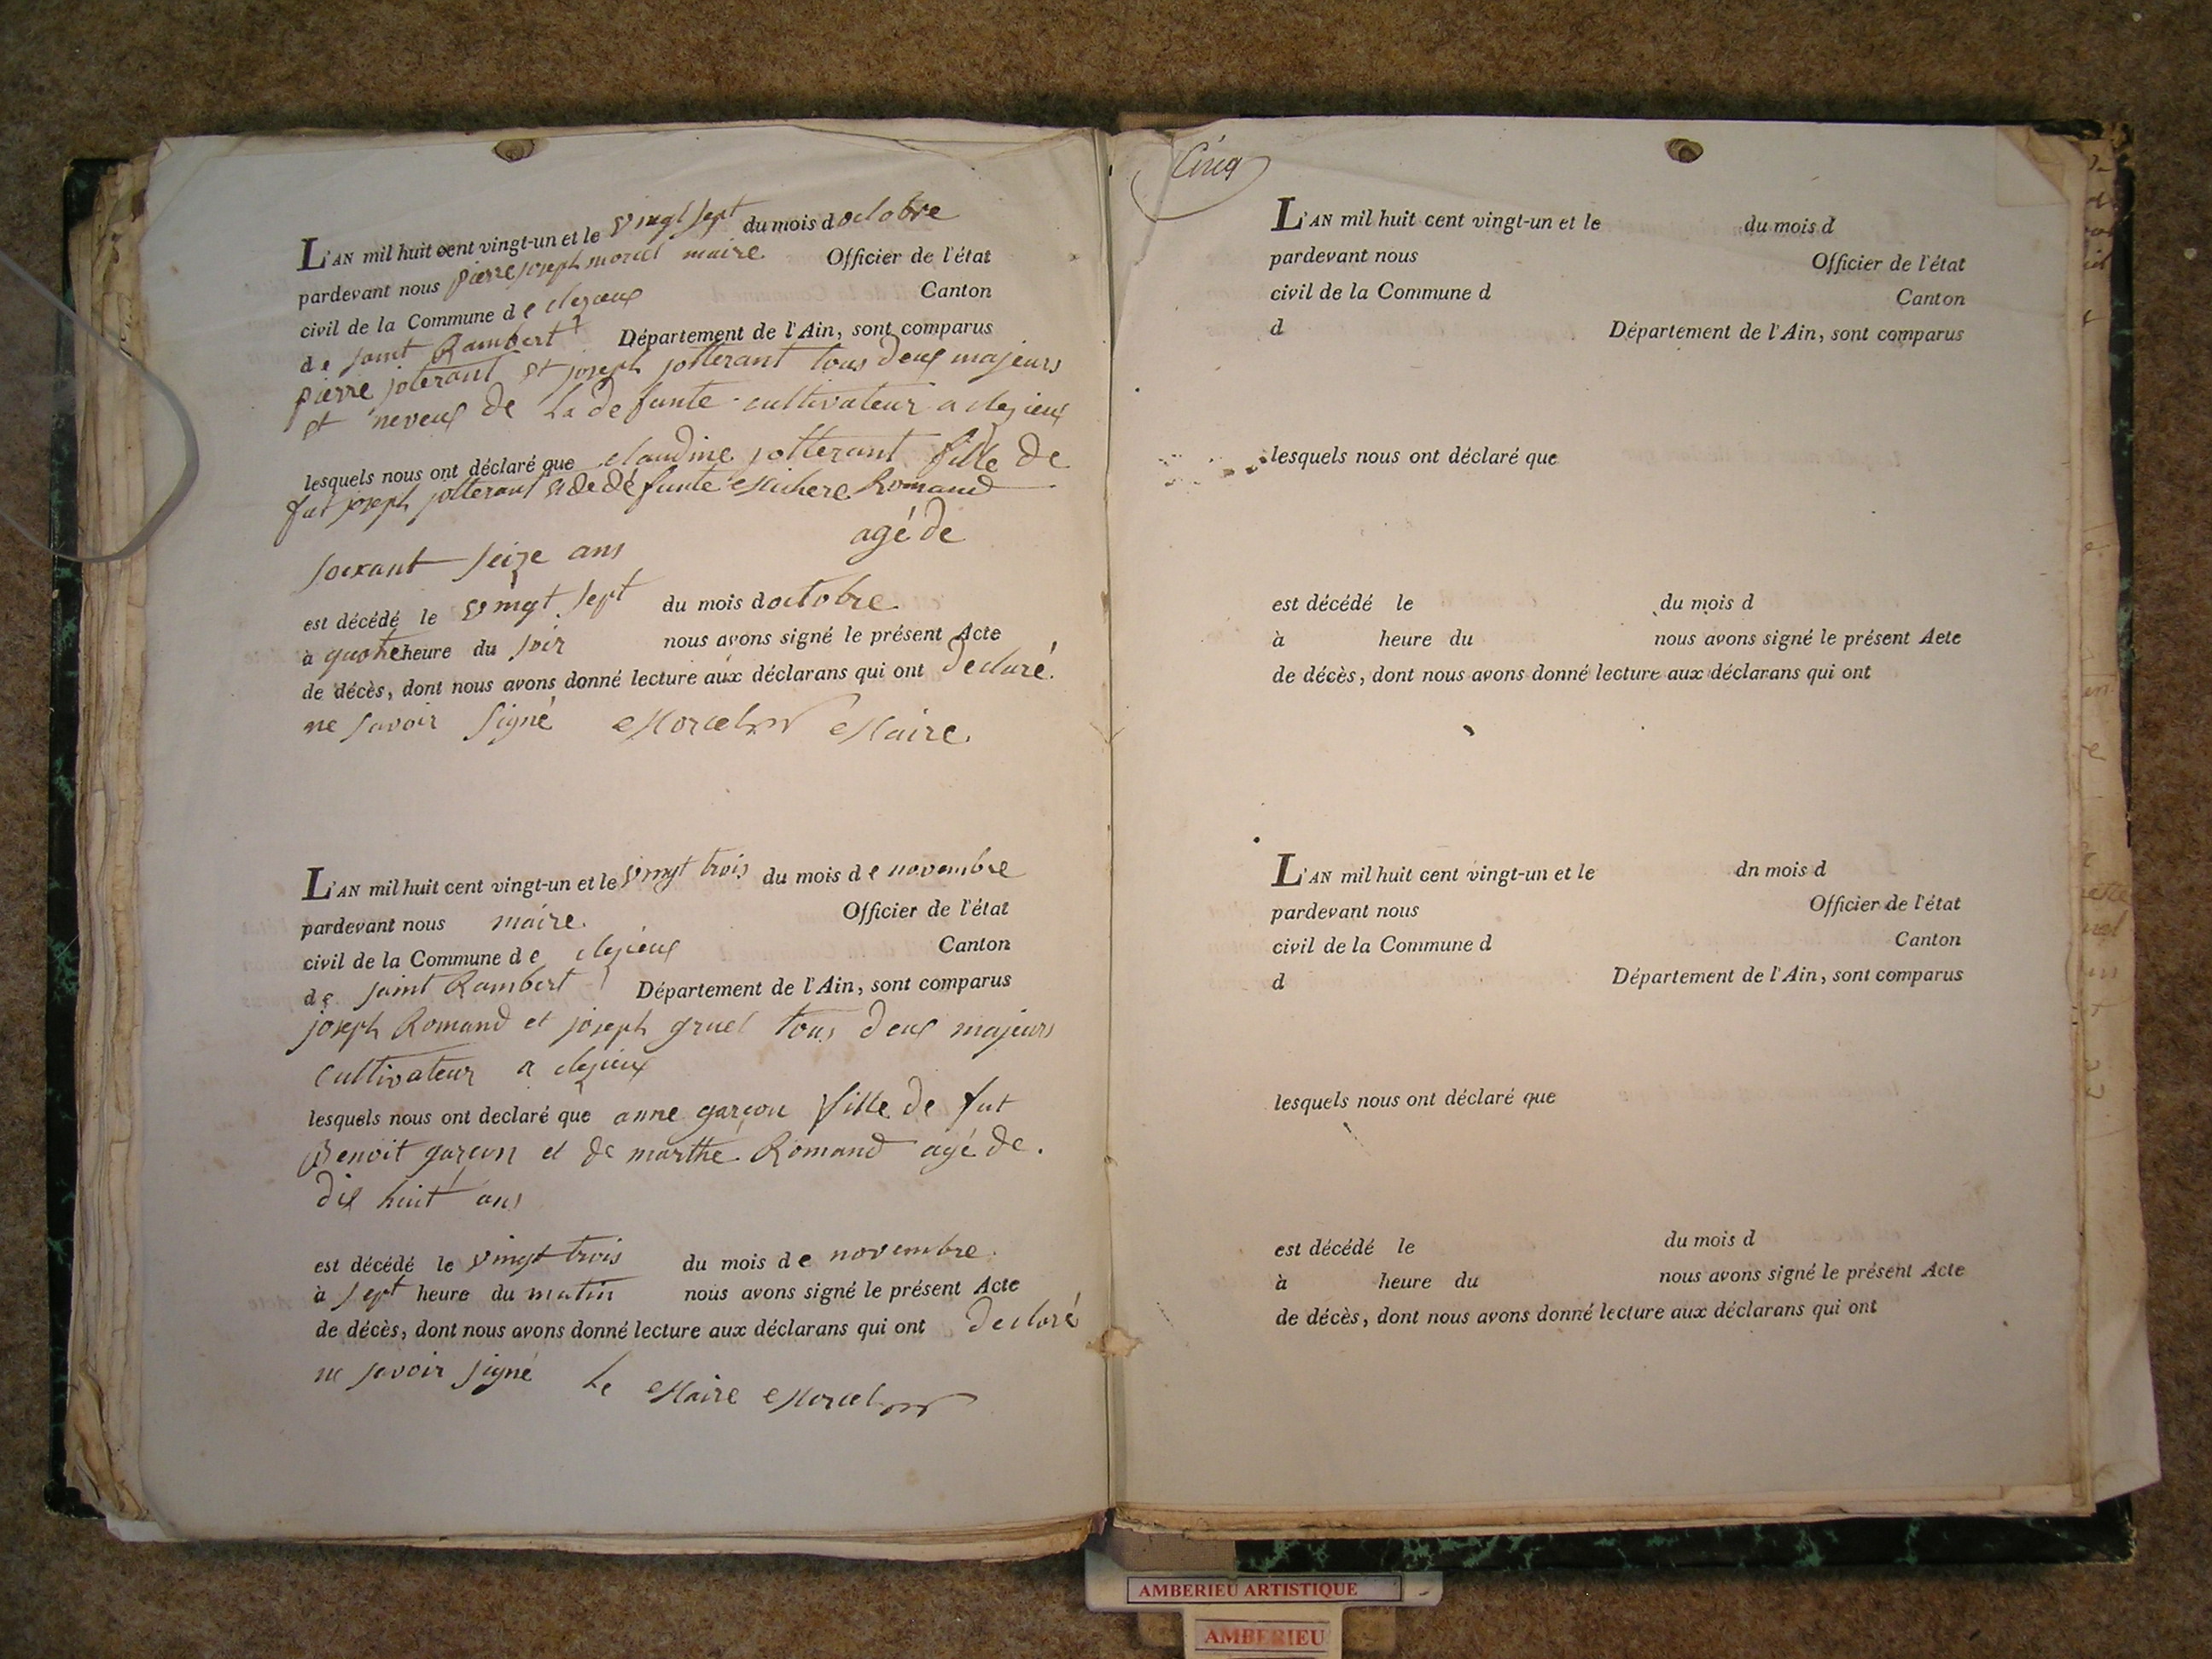 L'AN mil huit cent vingt-un et le vingt sept du mois d octobre
pardevant nous pierre joseph morcel maire Officier de l'état
civil de la Commune d e clezieux Canton
d e saint Rambert Département de l'Ain, sont comparus
pierre joterant et joseph jotterant tous deux majeurs
et neveux de La defunte cultivateur a clezieux
lesquels nous ont déclaré que claudine jotterant fille de
fut joseph jotterant et de défunte Romand
agé de
soixant seize ans
est décédé le vingt sept du mois d octobre
à quatre heure du soir nous avons signé le présent Acte
de décès, dont nous avons donné lecture aux déclarans qui ont declaré
ne savoir signé Morcel Maire
L'AN mil huit cent vingt-un et le vingt trois du mois d e novembre
pardevant nous maire Officier de l'état
civil de la Commune d e clezieux Canton
d e saint Rambert Département de l'Ain, sont comparus
joseph Romand et joseph gruel tous deux majeurs
cultivateur a clezieux
lesquels nous ont declaré que anne garçon fille de fut
Benoit garçon et de marthe Romand agé de
dix huit ans
est décédé le vingt trois du mois d e novembre
à sept heure du matin nous avons signé le présent Acte
de décès, dont nous avons donné lecture aux déclarans qui ont declaré
ne savoir signé Le Maire Morcel
Cinq
L'AN mil huit cent vingt-un et le du mois d
pardevant nous Officier de l'état
civil de la Commune d Canton
d Département de l'Ain, sont comparus
lesquels nous ont déclaré que
est décédé le du mois d
à heure du nous avons signé le présent Aete
de décès, dont nous avons donné lecture aux déclarans qui ont
L'AN mil huit cent vingt-un et le dn mois d
pardevant nous Officier de l'état
civil de la Commune d Canton
d Département de l'Ain, sont comparus
lesquels nous ont déclaré que
est décédé le du mois d
à heure du nous avons signé le présent Acte
de décès, dont nous avons donné lecture aux déclarans qui ont
AMBERIEU ARTISTIQUE
AMBERIEU